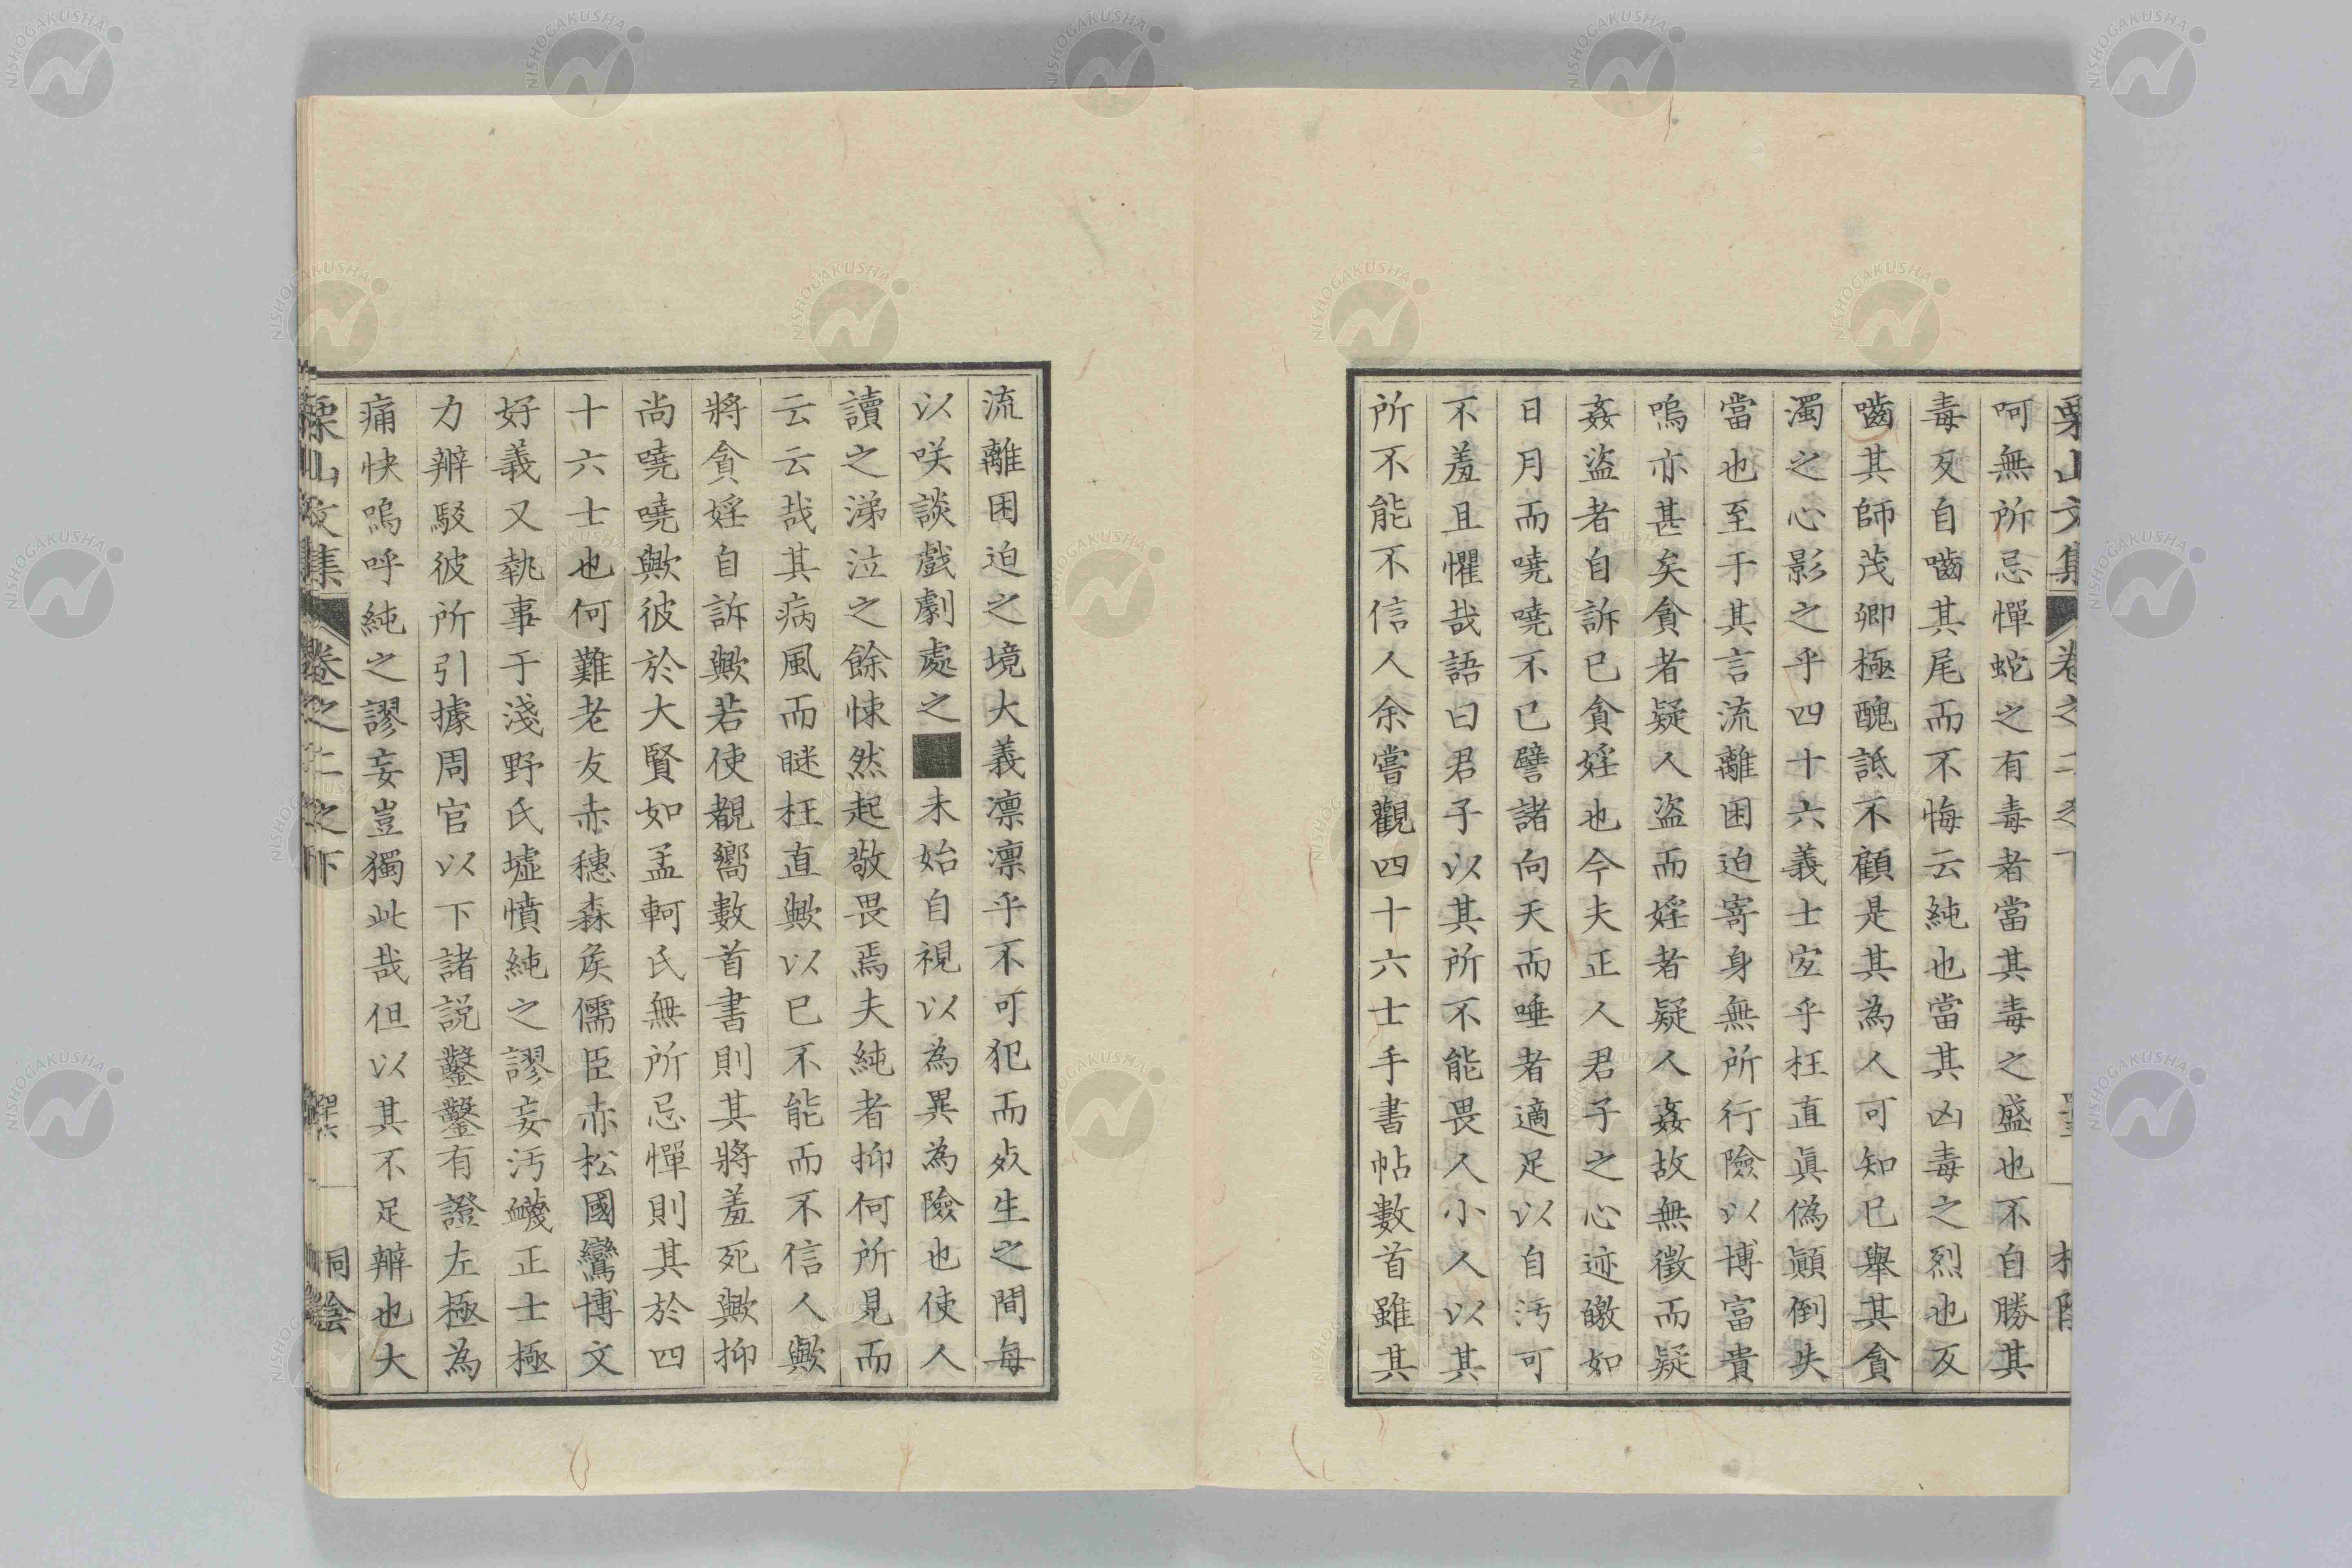 呵無所忌憚蛇之有毒者當其毒之盛也不自勝其
毒反自嚙其尾而不悔云純也當其凶毒之烈也反
嚙其師茂卿極醜詆不顧是其為人可知已舉其貪
濁之心影之乎四十六義士宐乎枉直眞偽顚倒失
當也至于其言流離困迫寄身無所行險以博富貴
嗚亦甚矣貪者疑人盜而婬者疑人姦故無徵而疑
姦盜者自訴已貪婬也今夫正人君子之心迹皦如
日月而嘵嘵不已譬諸向天而唾者適足以自汚可
不羞且懼哉語曰君子以其所不能畏人小人以其
所不能不信人余嘗觀四十六士手書帖數首雖其
流離困迫之境大義凛凛乎不可犯而㱙生之間每
以咲談戲劇處之■未始自視以為異為險也使人
讀之涕泣之餘悚然起敬畏焉夫純者抑何所見而
云云哉其病風而瞇枉直歟以已不能而不信人歟
將貪婬自訴歟若使覩嚮數首書則其將羞死歟抑
尚嘵嘵歟彼於大賢如孟軻氏無所忌憚則其於四
十六士也何難老友赤穗森矦儒臣赤松國鸞博文
好義又執事于淺野氏墟憤純之謬妄汚衊正士極
力辨駁彼所引據周官以下諸説鑿鑿有證左極為
痛快嗚呼純之謬妄豈獨此哉但以其不足辨也大
栗山文集 卷之二之下